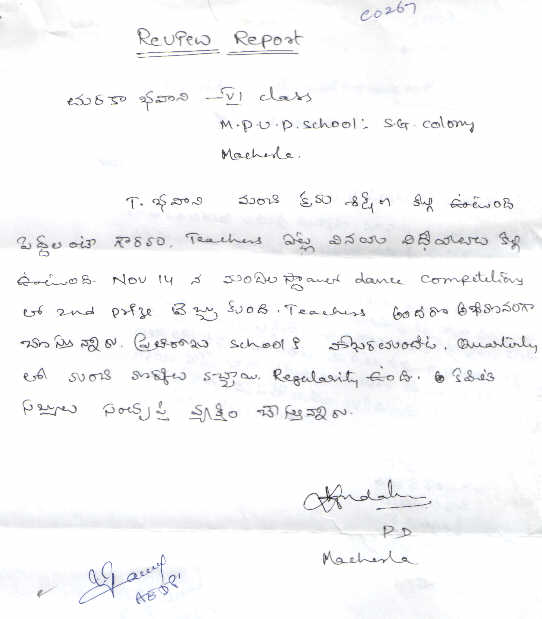 C0267
Review Report
తురకా భవాని - VI class
M.P.U.P. school: S.G. colony
Macherla.
T. భవాని మంచి క్రమ శిక్షణ కల్గి ఉంటుంది
పెద్దలంటే గౌరవం. Teachers పట్ల వినయం విధేయతలు కల్గి
ఉంటుంది. Nov 14 న మండల స్థాయి dance competitions
లో 2nd prize తెచ్చుకుంది. Teachers అందరూ అభిమానంగా
చూస్తున్నారు. ప్రతిరోజు school కి హాజరవుతుంది. Quarterly
లో మంచి మార్కులు వచ్చాయి. Regularity ఉంది.
సభ్యులు సంతృప్తి వ్యక్తం చేస్తున్నారు.
PD
Macherla